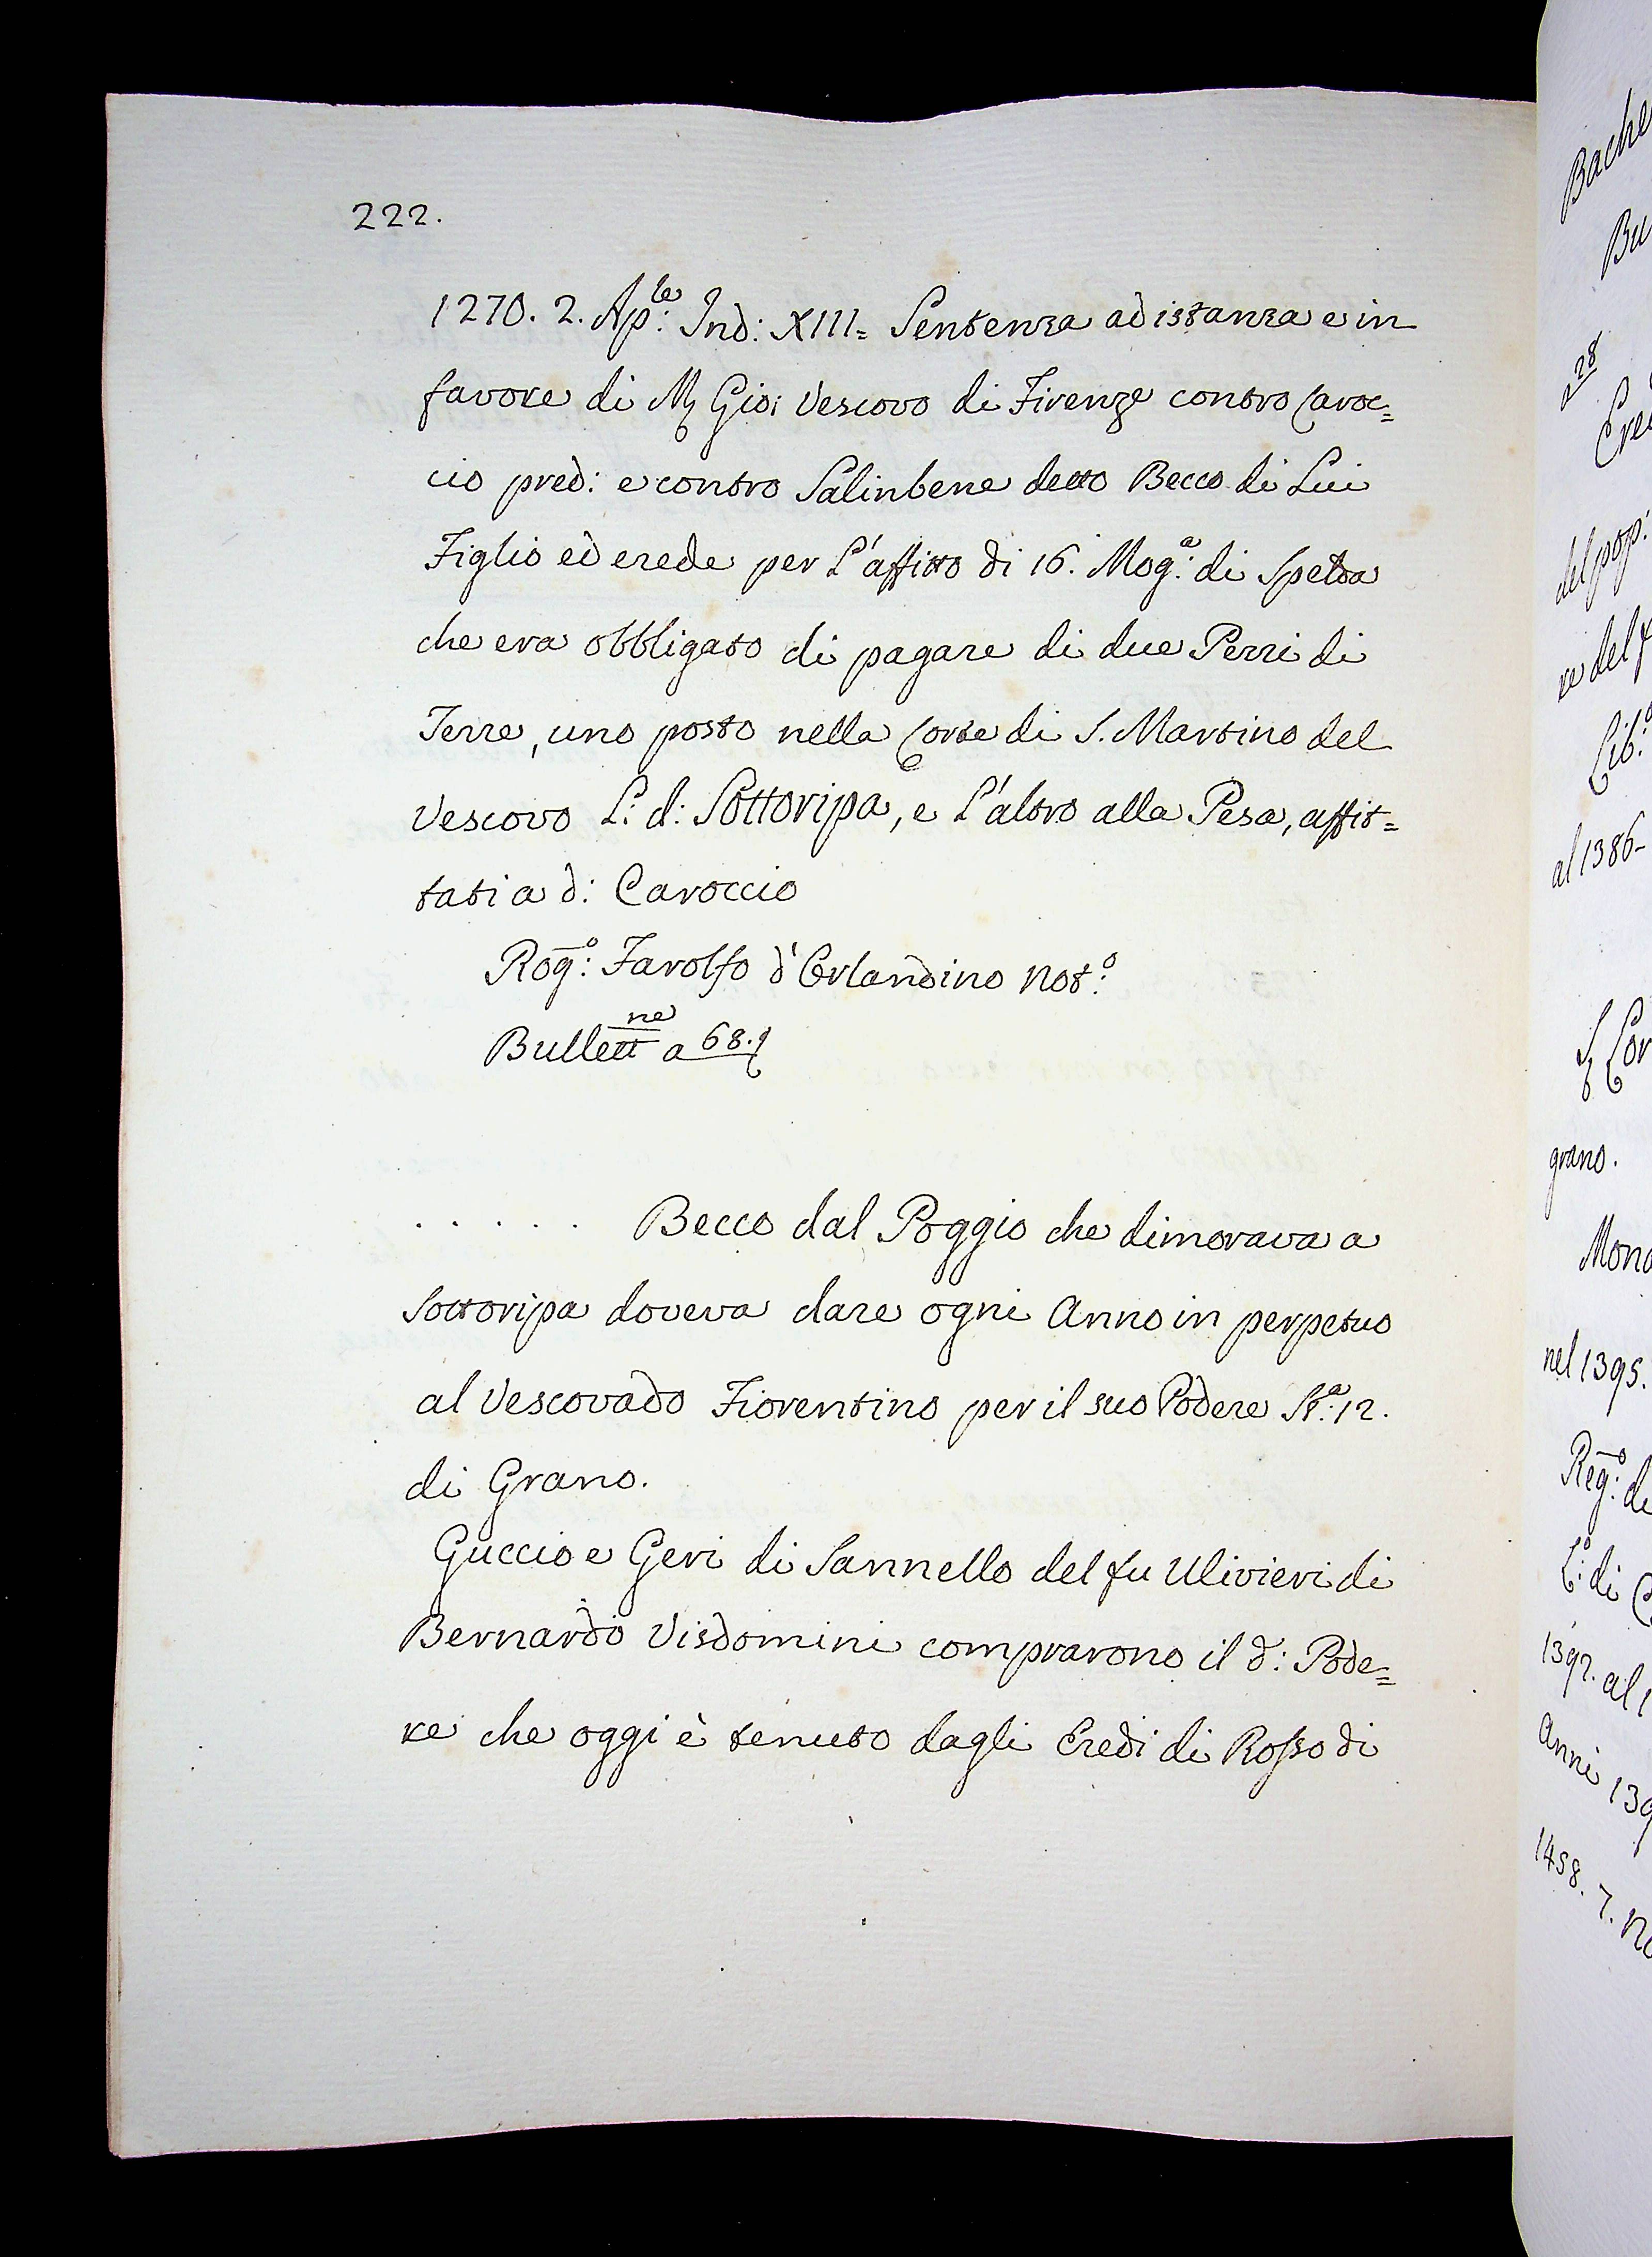 222.
1270. 2. Ap:le Ind: XIII= Sentenza ad istanza e in
favore di M Gio: Vescovo di Firenze contro Caroc=
cio pred: e contro Salinbene detto Becco di Lui
Figlio ed erede per L'affitto di 16. Mog:a di Spelta
che era obbligato di pagare di due Pezzi di
Terre, uno posto nella Corte di S. Martino del
Vescovo L: d: Sottoripa, e L'altro alla Pesa, affit=
tati a d: Caroccio
Rog:o Farolfo d'Orlandino Not:o
Bullettne a 68.
. . . . . Becco dal Poggio che dimorava a
Sottoripa doveva dare ogni Anno in perpetuo
al Vescovado Fiorentino per il suo Podere St:a 12.
di Grano.
Guccio e Geri di Sannello del fu Ulivieri di
Bernardo Visdomini comprarono il d: Pode=
re che oggi è tenuto dagli Eredi di Rosso di
Bache
Bu
28
Cre
del pop:
re del
Lib:o
al 1386-
S Lor
grano.
Mona
nel 1395.
Reg:o di
L:o di
1392. al 1
Anni 139
1458. 7. No